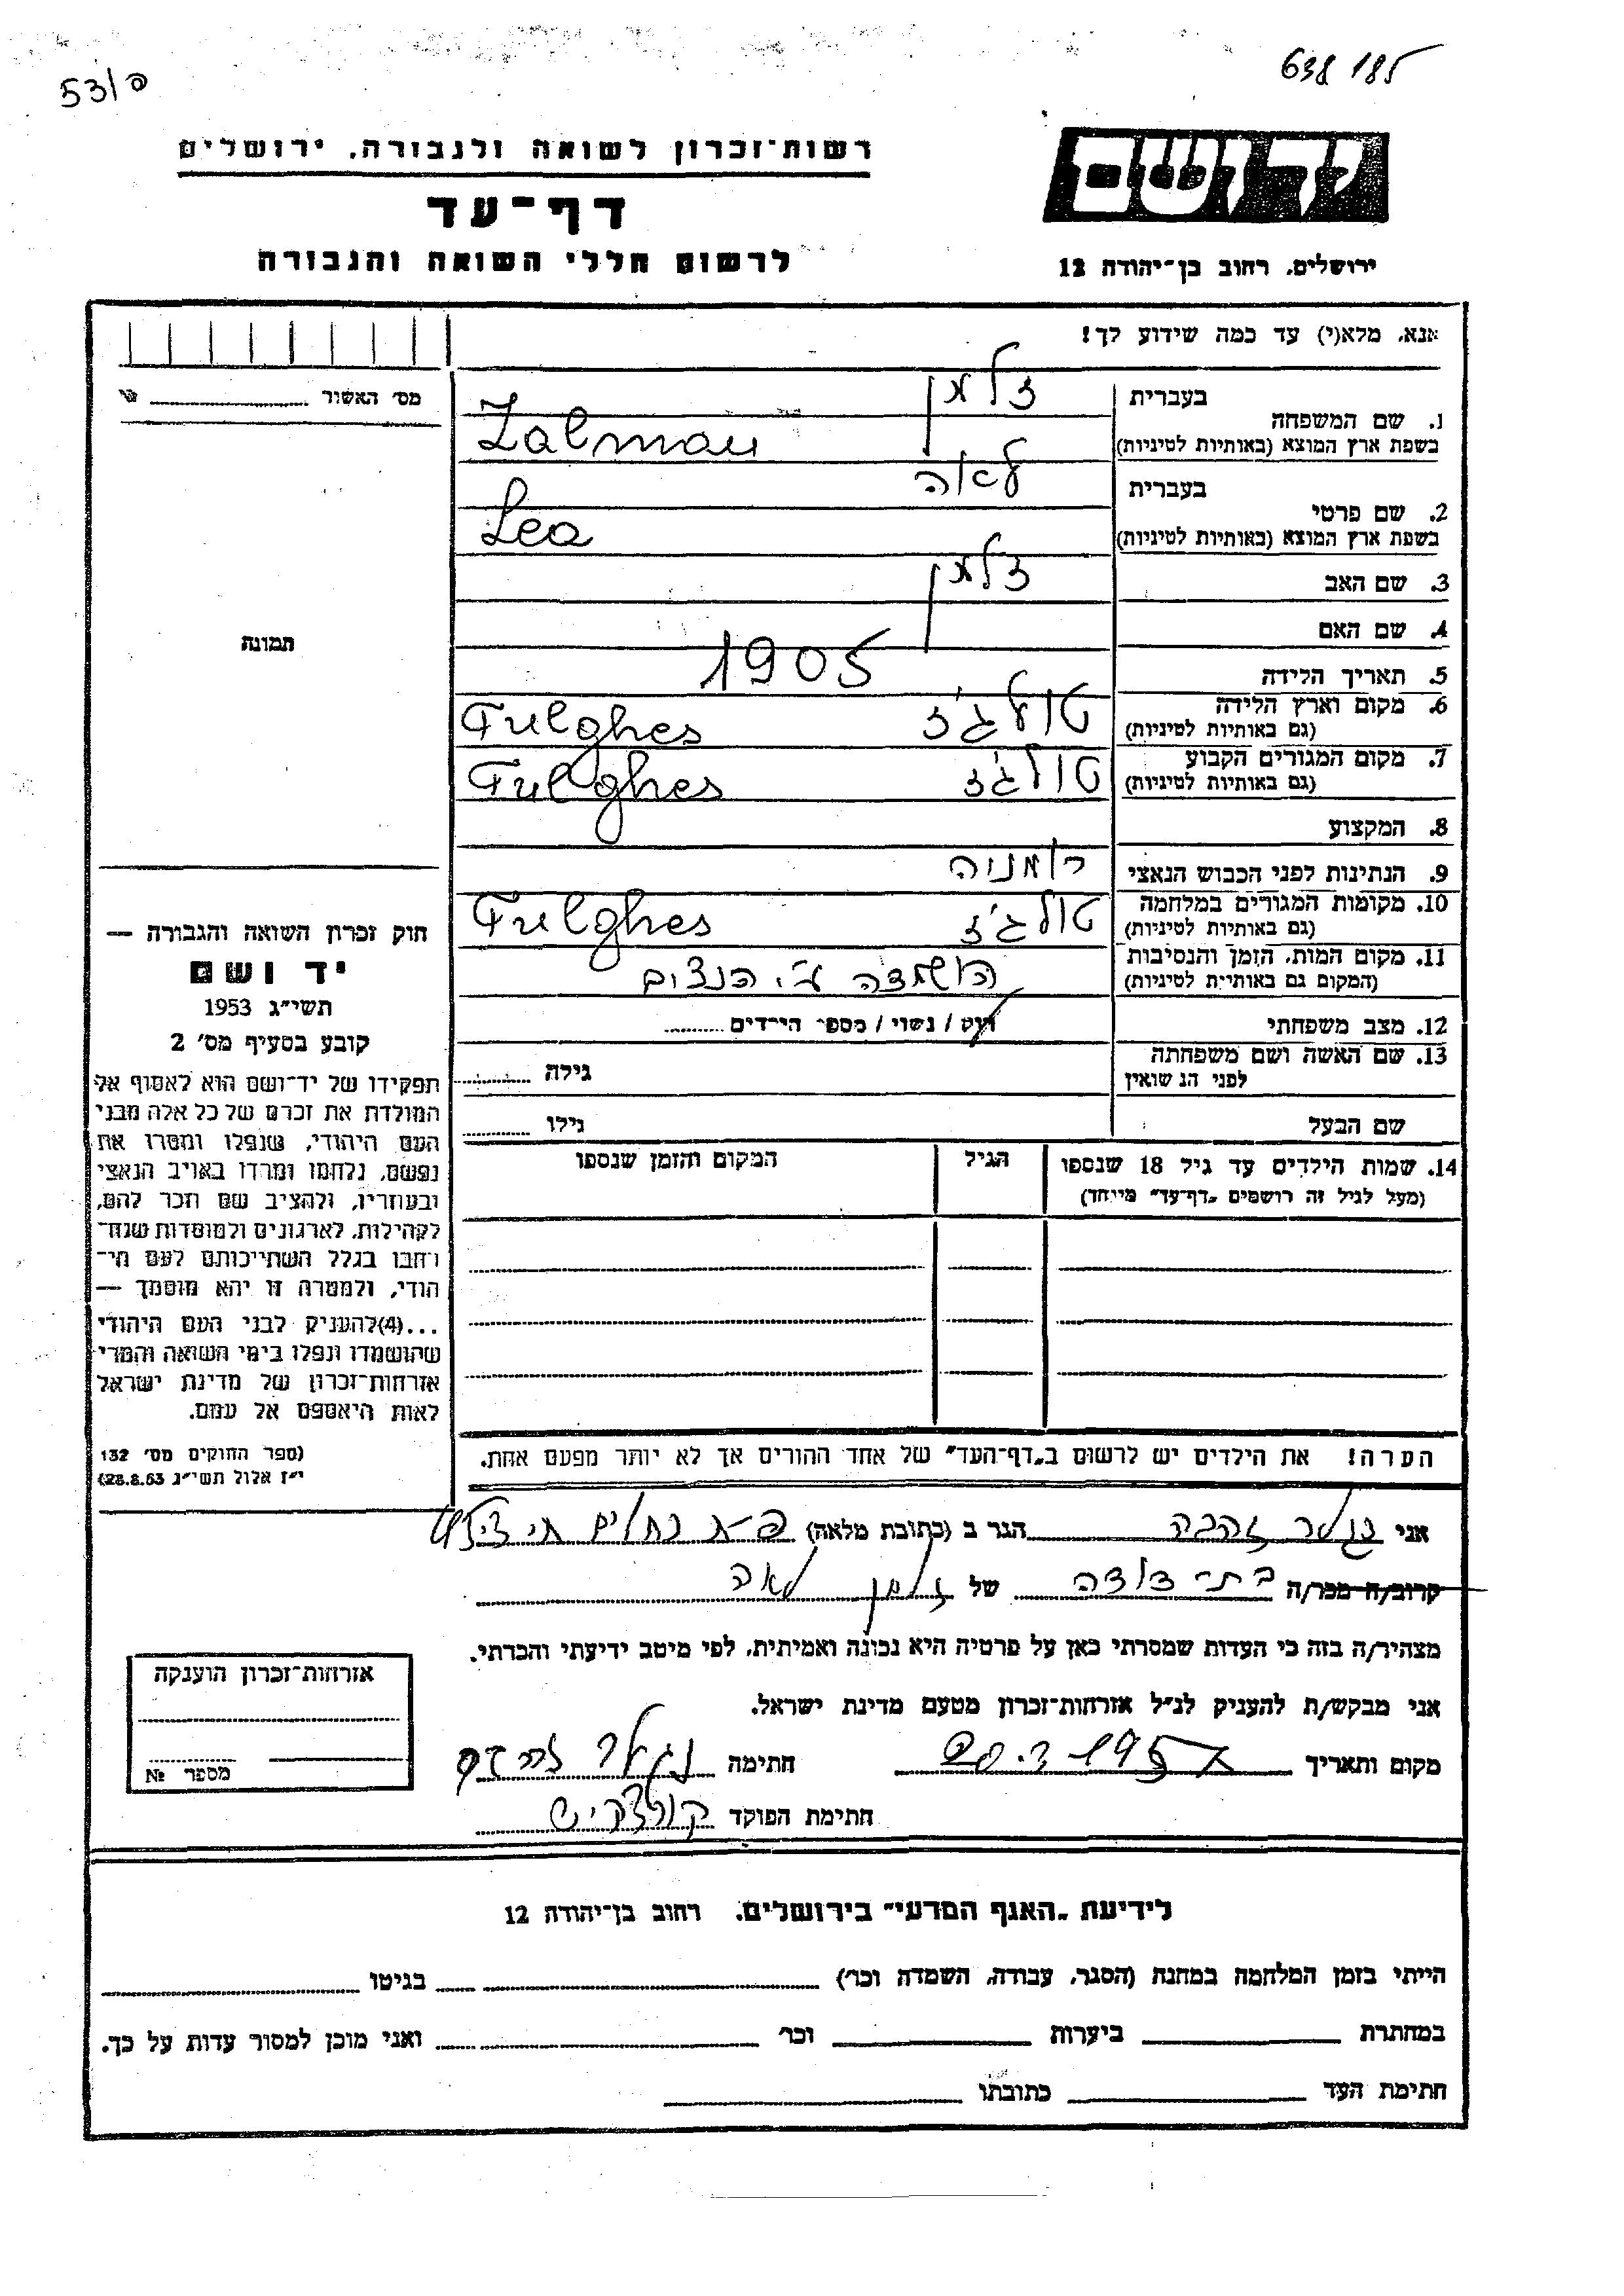 53/פ
638 185
רשות-זכרון לשואה ולגבורה, ירושלים
יד ושם
דף-עד
לרשום חללי השואה והגבורה
ירושלים, רחוב בן-יהודה 12
אנא, מלא(י) עד כמה שידוע לך!
מס' האשור
תמונה
1. שם המשפחה
בעברית
זלמן
בשפת ארץ המוצא (באותיות לטיניות)
Zalman
2. שם פרטי
בעברית
לאה
בשפת ארץ המוצא (באותיות לטיניות)
Lea
3. שם האב
זלמן
4. שם האם
5. תאריך הלידה
1905
6. מקום וארץ הלידה
(גם באותיות לטיניות)
טולג'ז Tulghes
7. מקום המגורים הקבוע
(גם באותיות לטיניות)
טולג'ז Tulghes
8. המקצוע
9. הנתינות לפני הכבוש הנאצי
רומניה
10. מקומות המגורים במלחמה
(גם באותיות לטיניות)
טולג'ז Tulghes
11. מקום המות, הזמן והנסיבות
(המקום גם באותיות לטיניות)
הושמדה ע"י הנצים
12. מצב משפחתי
רוק / נשוי / מספר הילדים
13. שם האשה ושם משפחתה
לפני הנשואין
גילה
שם הבעל
גילו
14. שמות הילדים עד גיל 18 שנספו
(מעל לגיל זה רושמים "דף-עד" מייחד)
הגיל
המקום והזמן שנספו
הערה! את הילדים יש לרשום ב"דף-העד" של אחד ההורים אך לא יותר מפעם אחת.
חוק זכרון השואה והגבורה —
יד ושם
תשי"ג 1953
קובע בסעיף מס' 2
תפקידו של יד-ושם הוא לאסוף אל
המולדת את זכרם של כל אלה מבני
העם היהודי, שנפלו ומסרו את
נפשם, נלחמו ומרדו באויב הנאצי
ובעוזריו, ולהציב שם וזכר להם,
לקהילות, לארגונים ולמוסדות שנח-
רבו בגלל השתייכותם לעם הי-
הודי, ולמטרה זו יהא מוסמך —
...(4)להעניק לבני העם היהודי
שהושמדו ונפלו בימי השואה והמרי
אזרחות-זכרון של מדינת ישראל
לאות היאספם אל עמם.
(ספר החוקים מס' 132
י"ז אלול תשי"ג 28.8.53)
אני זהבה הגר ב (כתובת מלאה)
קרוב/ה מכר/ה בת-דודה של זלמן לאה
מצהיר/ה בזה כי העדות שמסרתי כאן על פרטיה היא נכונה ואמיתית, לפי מיטב ידיעתי והכרתי.
אני מבקש/ת להעניק לנ"ל אזרחות-זכרון מטעם מדינת ישראל.
מקום ותאריך חתימה
חתימת הפוקד
אזרחות-זכרון הוענקה
מספר №
לידיעת "האגף המדעי" בירושלים, רחוב בן-יהודה 12
הייתי בזמן המלחמה במחנה (הסגר, עבודה, השמדה וכו') בגיטו
במחתרת ביערות וכו' ואני מוכן למסור עדות על כך.
חתימת העד כתובתו